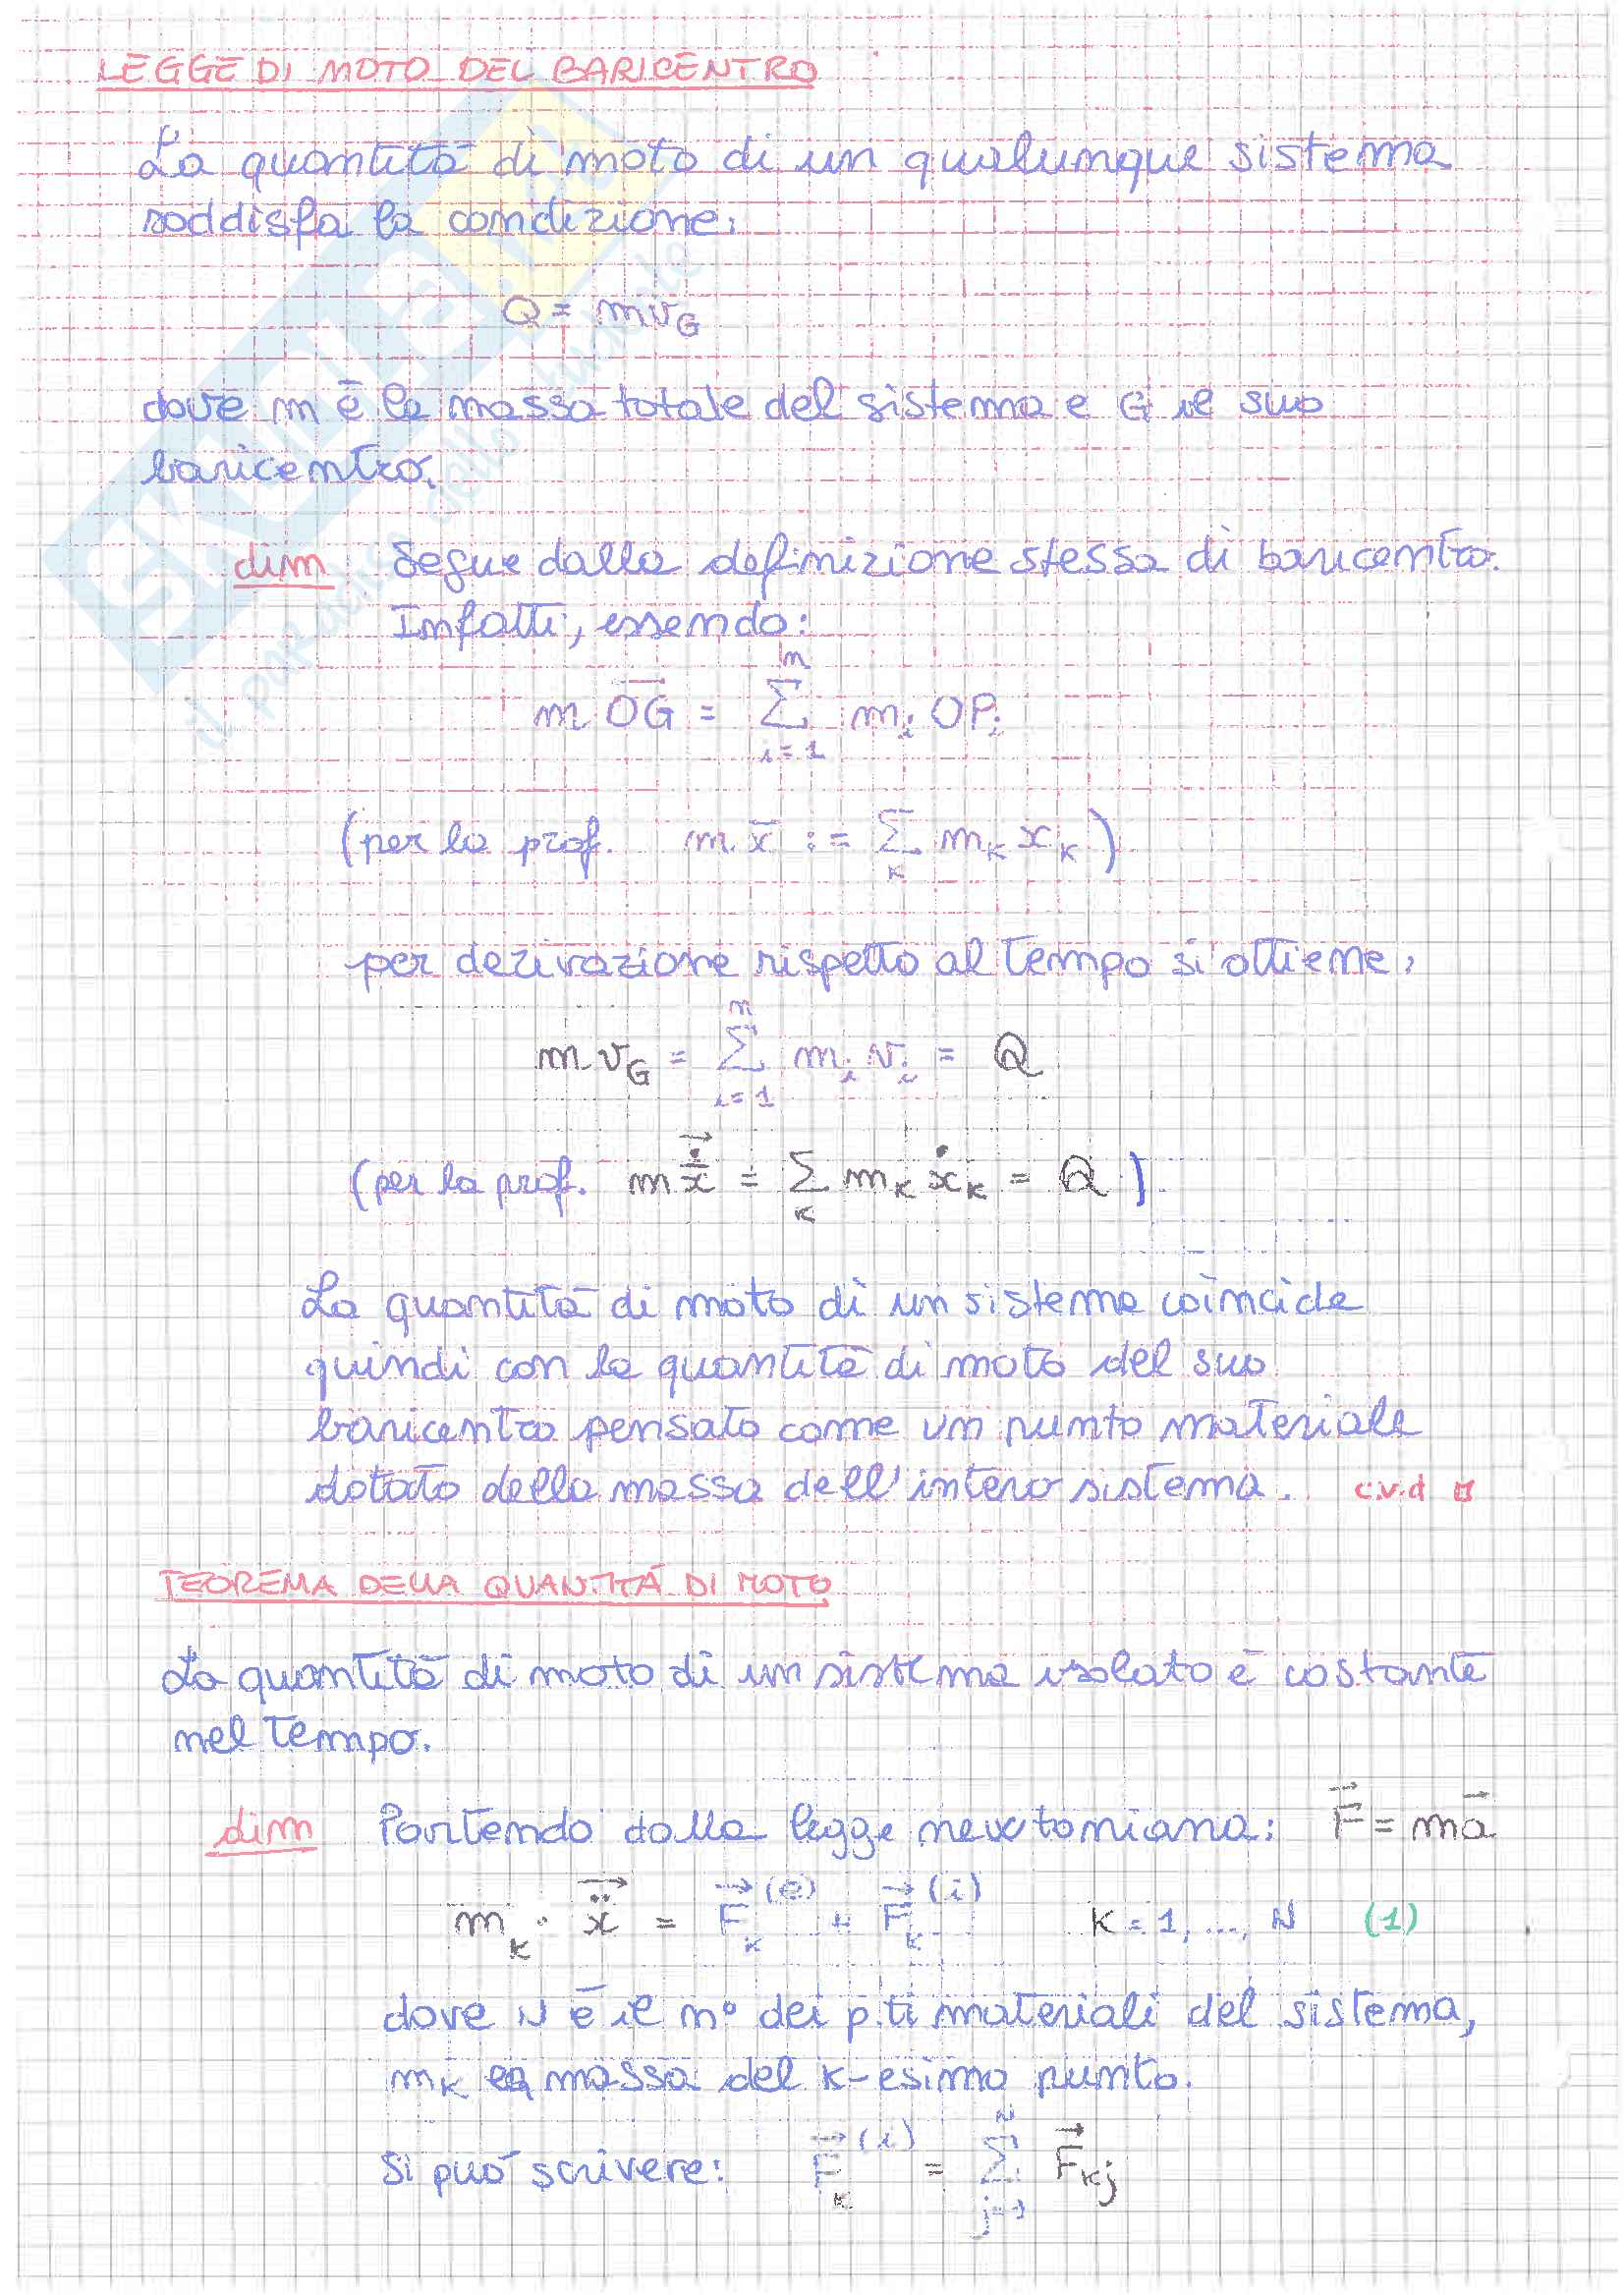 LEGGE DI MOTO DEL BARICENTRO
La quantità di moto di un qualunque sistema
soddisfa la condizione:
Q = m v_G
dove m è la massa totale del sistema e G il suo
baricentro.
dim Segue dalla definizione stessa di baricentro.
Infatti, essendo:
m \overrightarrow{OG} = \sum_{i=1}^{n} m_i OP_i
(per la prof. m \bar{x} := \sum_k m_k x_k)
per derivazione rispetto al tempo si ottiene:
m v_G = \sum_{i=1}^{n} m_i v_i = Q
(per la prof. m \vec{\dot{\bar{x}}} = \sum_k m_k \dot{x}_k = Q)
La quantità di moto di un sistema coincide
quindi con la quantità di moto del suo
baricentro pensato come un punto materiale
dotato della massa dell'intero sistema. c.v.d □
TEOREMA DELLA QUANTITÀ DI MOTO
La quantità di moto di un sistema isolato è costante
nel tempo.
dim Partendo dalla legge newtoniana: \vec{F} = m\vec{a}
m_k · \vec{\ddot{x}} = \vec{F}_k^{(e)} + \vec{F}_k^{(i)} k = 1, ..., N (1)
dove N è il n° dei p.ti materiali del sistema,
m_k la massa del k-esimo punto.
Si può scrivere: \vec{F}_k^{(i)} = \sum_{j=1}^{N} \vec{F}_{kj}
SKUOLA
il paradiso dello studente